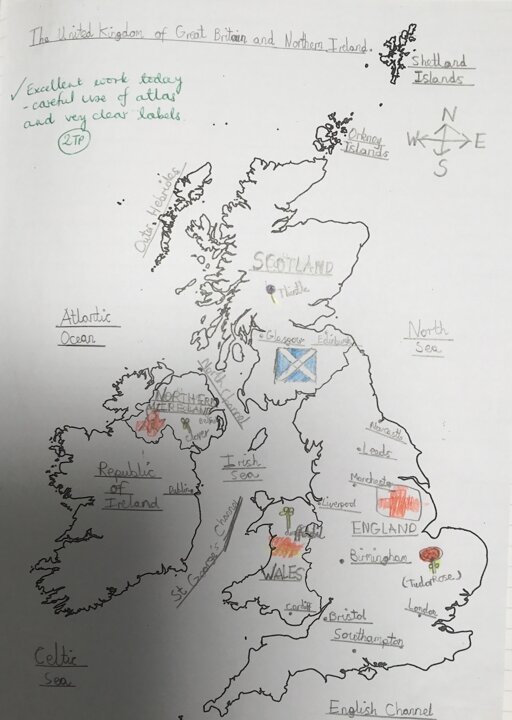 The United Kingdom of Great Britain and Northern Ireland.
Shetland
Islands
✓ Excellent work today
- careful use of atlas
and very clear labels.
2TP
Orkney
Islands
N
W E
S
Outer Hebrides
SCOTLAND
Thistle
Atlantic
Ocean
North
Sea
Glasgow
Edinburgh
North Channel
NORTHERN
IRELAND
Belfast
clover
Newcastle
Leeds
Republic
of
Ireland
Dublin
Irish
Sea
Manchester
Liverpool
St George's Channel
ENGLAND
WALES
Birmingham
(Tudor Rose)
Cardiff
Bristol
London
Southampton
Celtic
Sea
English Channel